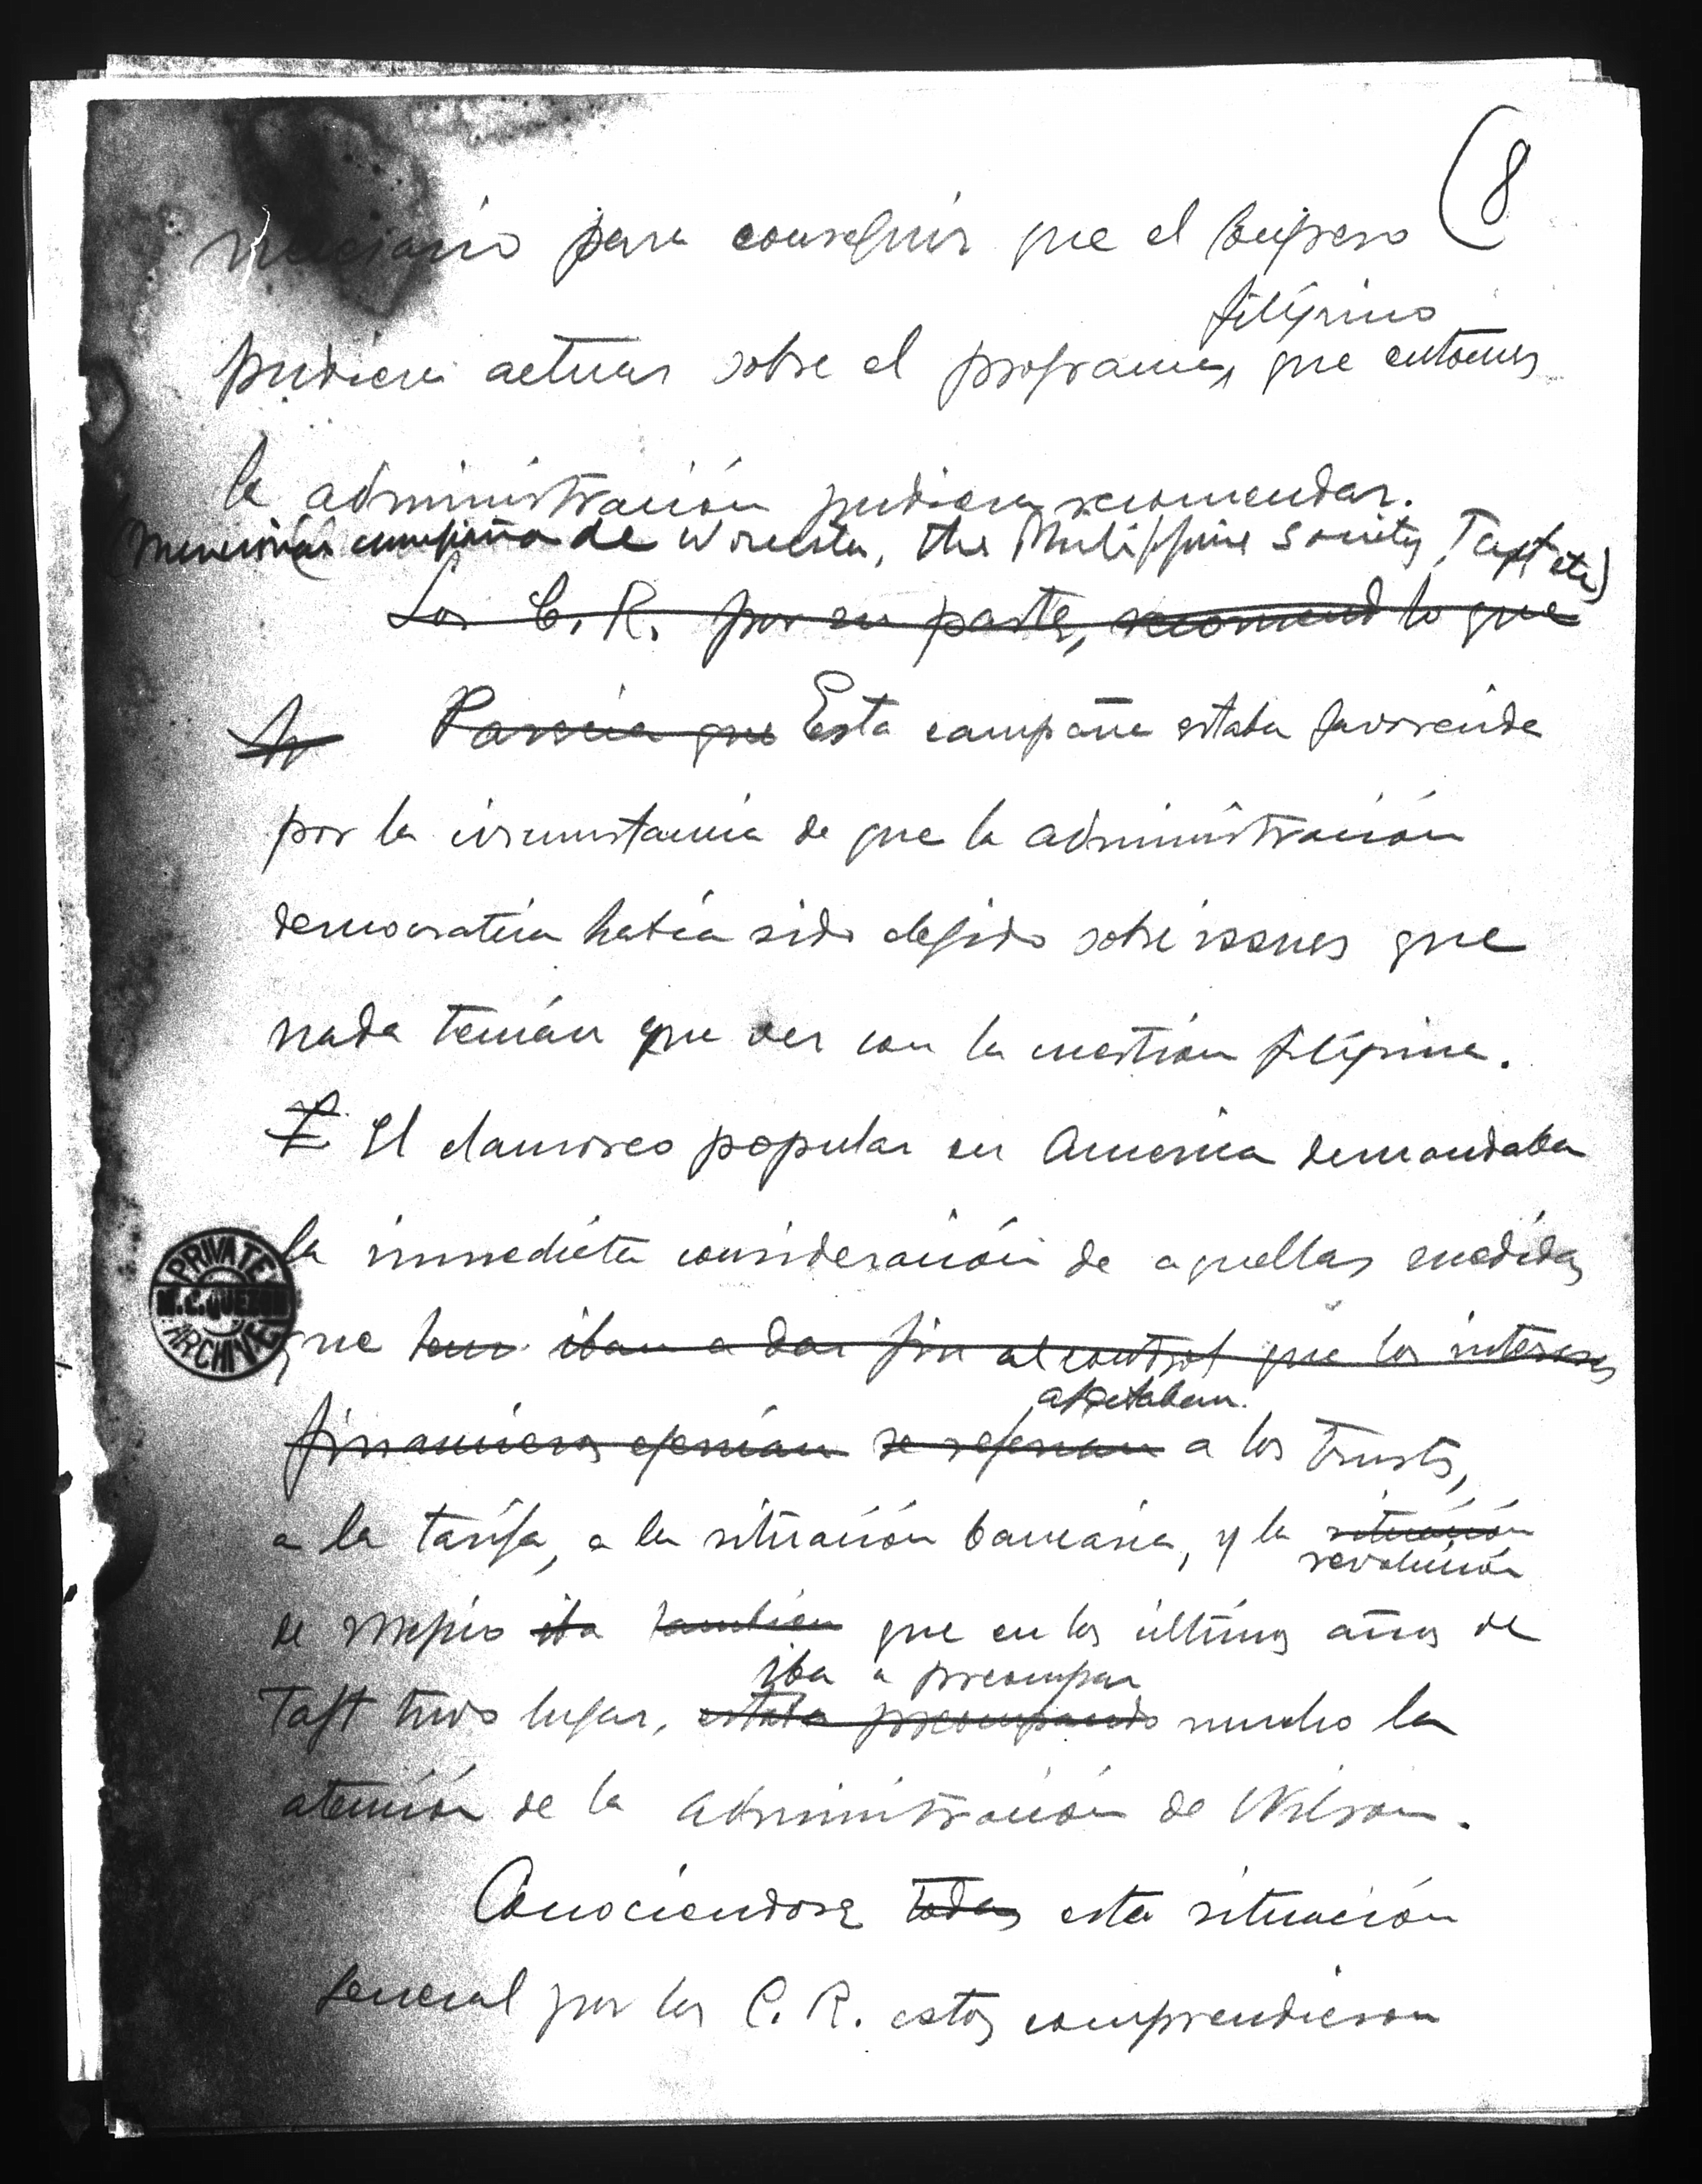 (8
necesario para conseguir que el Congreso
filipino
pudiera actuar sobre el programa, que entonces
la administración pudiera recomendar.
(Mencionar campaña de Worcester, the Philippine Society, Taft etc)
Los C. R. por su parte, recomend lo que
Parecía que Esta campaña estaba favorecida
por la circunstancia de que la administración
democratica había sido elejido sobre issues que
nada tenían que ver con la cuestión filipina.
El clamoreo popular en America demandaba
la inmediata consideración de aquellas medidas
que iban a dar fin al control que los intereses
afectaban
financieros ejercían se referían a los trusts,
a la tarifa, a la situación bancaria, y la situación
revolución
de Mejico iba tambien que en los últimos años de
iba a preocupar
Taft tuvo lugar, estaba preocupando mucho la
atención de la administración de Wilson.
Conociendose todas esta situación
general por los C. R. estos comprendieron
PRIVATE
M. L. QUEZON
ARCHIVE